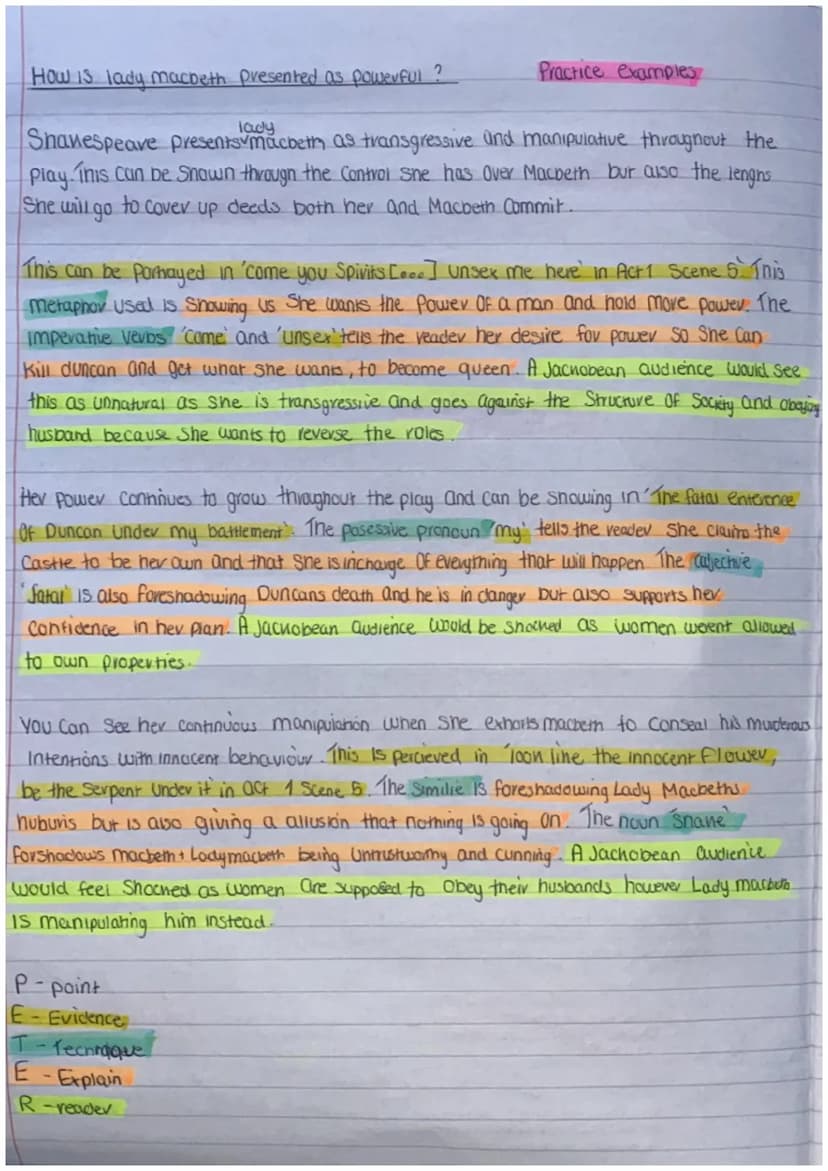 How is lady macbeth presented as powerful ?
Practice examples
Shakespeare presents lady macbeth as transgressive and manipulative throughout the
play. This can be shown through the control she has over Macbeth but also the lenghs
She will go to cover up deeds both her and Macbeth Commit.
This can be portrayed in 'come you Spirits [...] unsex me here' in Act 1 Scene 5. This
metaphor used is showing us she wants the power of a man and hold more power. The
imperative verbs 'come' and 'unsex' tells the reader her desire for power so She Can
Kill duncan and get what she wants, to become queen. A Jachobean audience would see
this as unnatural as she is transgressive and goes against the Structure of Society and obeying
husband because she wants to reverse the roles.
Her power continues to grow throughout the play and can be showing in 'The fatal enterence
Of Duncan under my battlement'. The posessive pronoun 'my' tells the reader she claims the
Castle to be her own and that she is incharge of everything that will happen The adjective
'fatal' is also foreshadowing Duncans death and he is in danger but also supports her
Confidence in her plan. A Jachobean audience would be shocked as women werent allowed
to own properties.
You can see her continuous manipulation when she exhorts macbeth to conseal his murderous
Intentions with innocent behaviour. This is percieved in 'look like the innocent flower,
be the serpent under it' in act 1 Scene 5. The Similie is foreshadowing Lady Macbeths
huburis but is also giving a allusion that nothing is going on. The noun 'snake'
forshadows macbeth + Lady macbeth being untrustworthy and cunning. A Jachobean audience
would feel shocked as women are supposed to obey their husbands however Lady macbeth
is manipulating him instead.
P - point
E - Evidence
T - Technique
E - Explain
R - reader